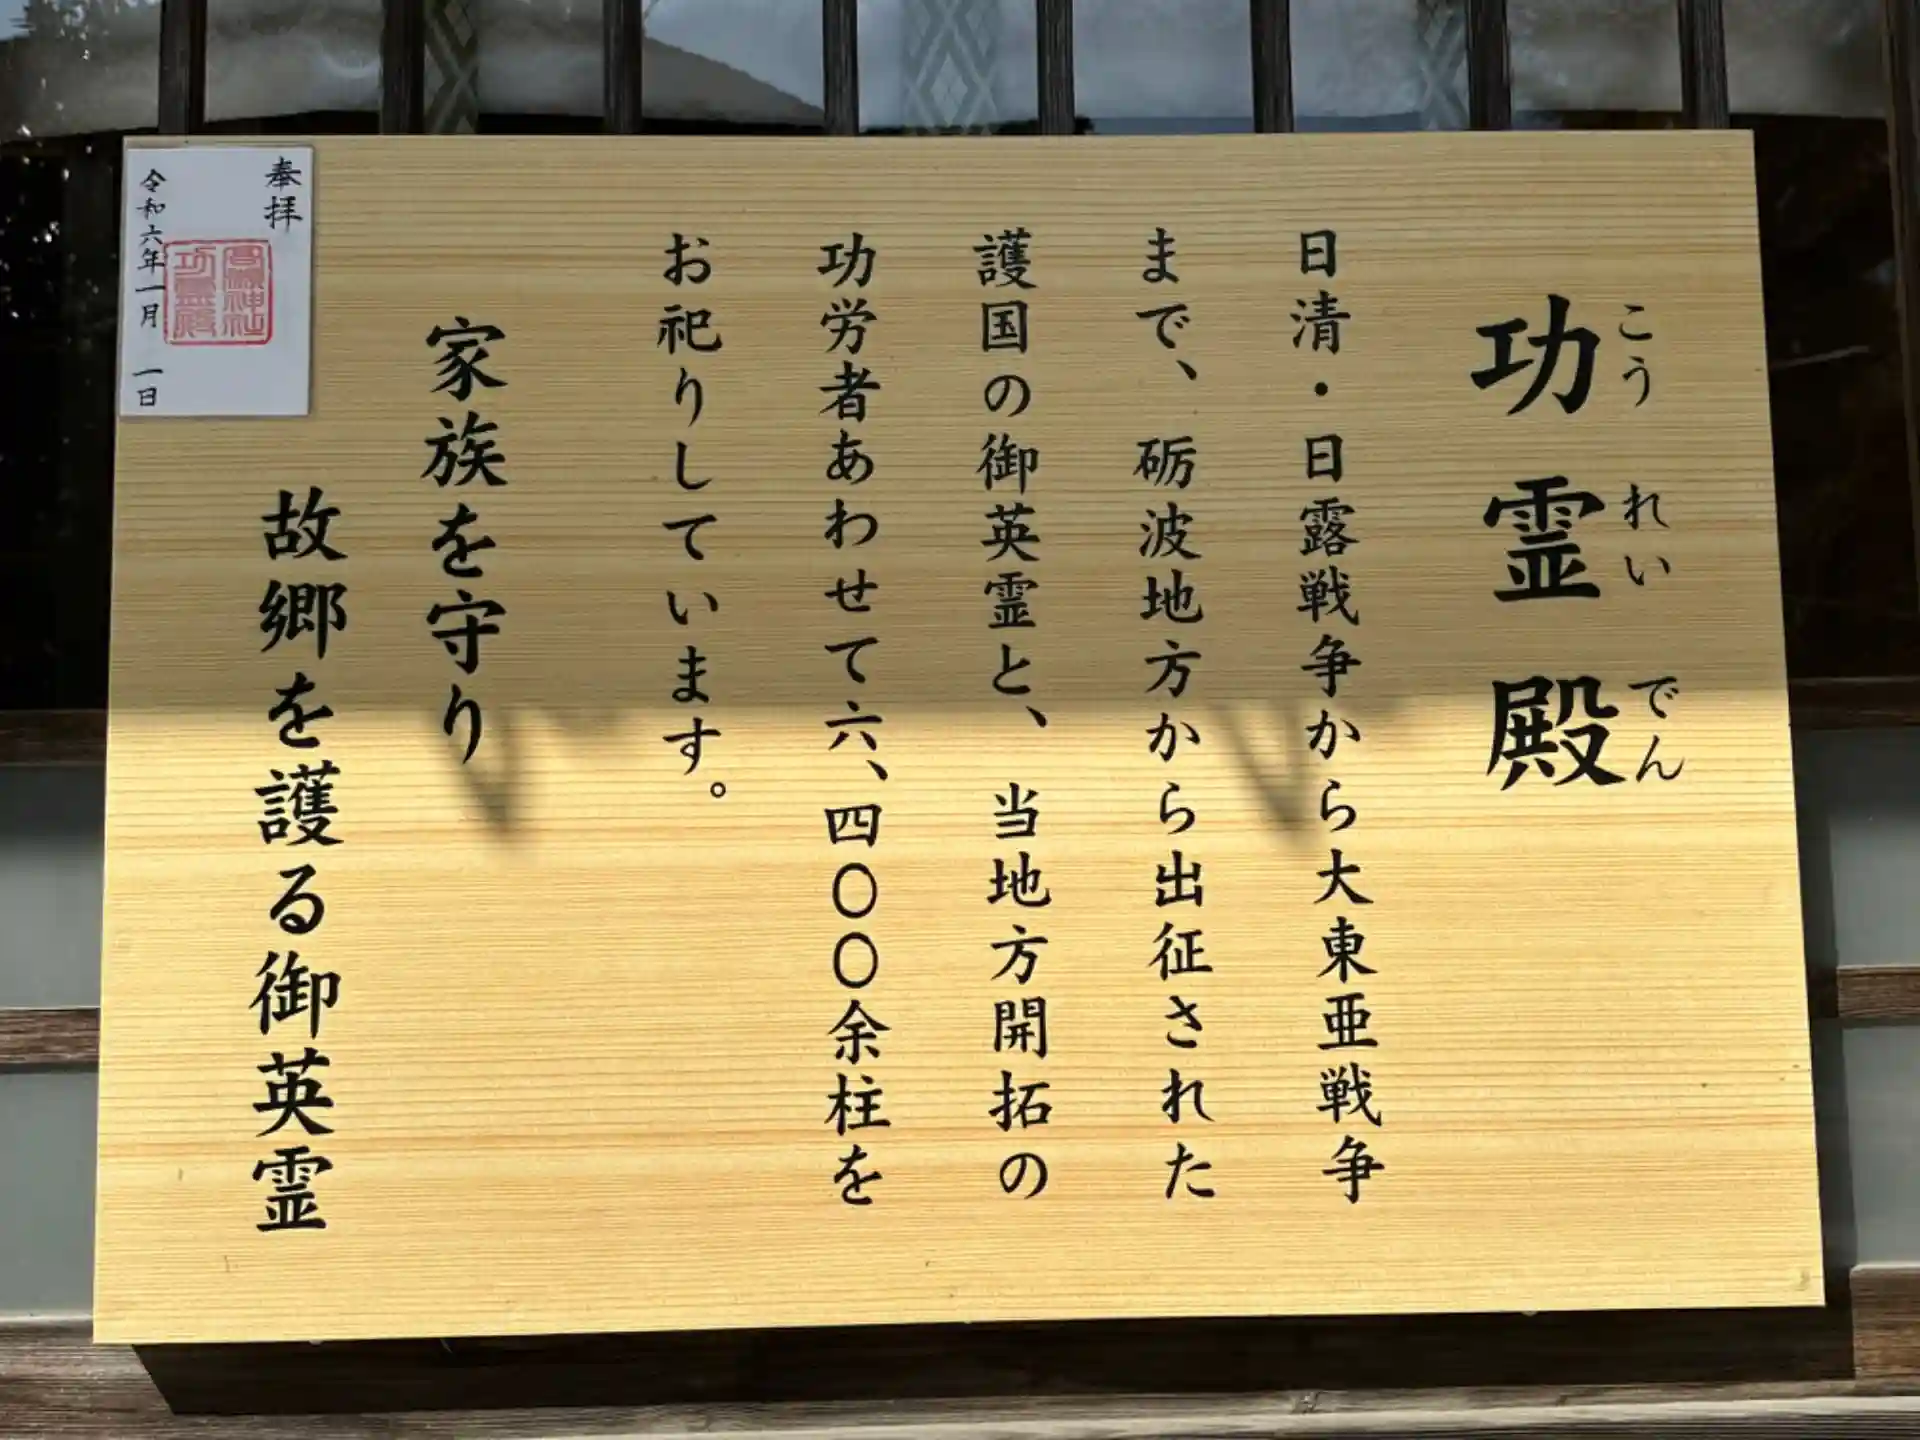 功霊殿
こうれいでん
日清・日露戦争から大東亜戦争
まで、砺波地方から出征された
護国の御英霊と、当地方開拓の
功労者あわせて六、四〇〇余柱を
お祀りしています。
家族を守り
故郷を護る御英霊
奉拝
神社
功霊殿
令和六年一月一日